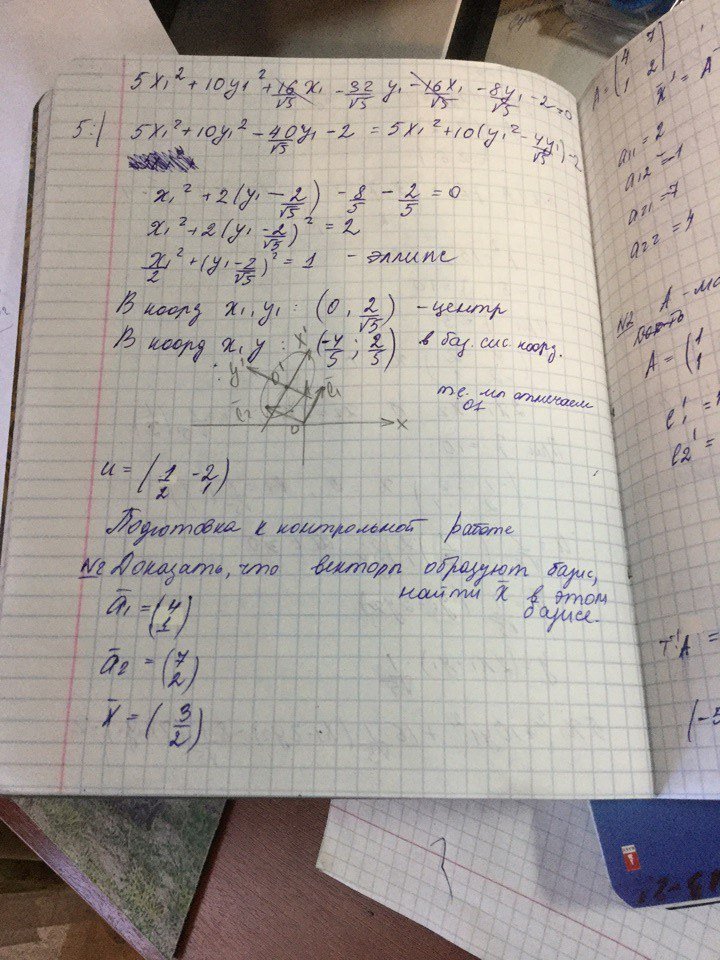 5x₁² + 10y₁² + 16/√5 x₁ - 32/√5 y₁ - 16x₁/√5 - 8y₁/√5 - 2 = 0
5:| 5x₁² + 10y₁² - 40/√5 y₁ - 2 = 5x₁² + 10(y₁² - 4y₁/√5) - 2
x₁² + 2(y₁ - 2/√5) - 8/5 - 2/5 = 0
x₁² + 2(y₁ - 2/√5)² = 2
x₁²/2 + (y₁ - 2/√5)² = 1 - эллипс
В коорд x₁, y₁ : (0, 2/√5) - центр
В коорд x, y : (-4/5 ; 2/5) в баз. сис коорд.
x'
y'
O'
e₁
e₂
O
x
т.е. мы отмечаем
u = (1 -2
2 1)
Подготовка к контрольной работе
№2 Доказать, что векторы образуют базис,
найти x̄ в этом
базисе.
ā₁ = (4
1)
ā₂ = (7
2)
x̄ = (3
2)
A = (4 7
1 2)
x̄' = A⁻
a₁₁ = 2
a₁₂ = -1
a₂₁ = 7
a₂₂ = 4
№2 A - ма
A = (1
1
e₁' =
e₂' =
T⁻¹A =
(-5